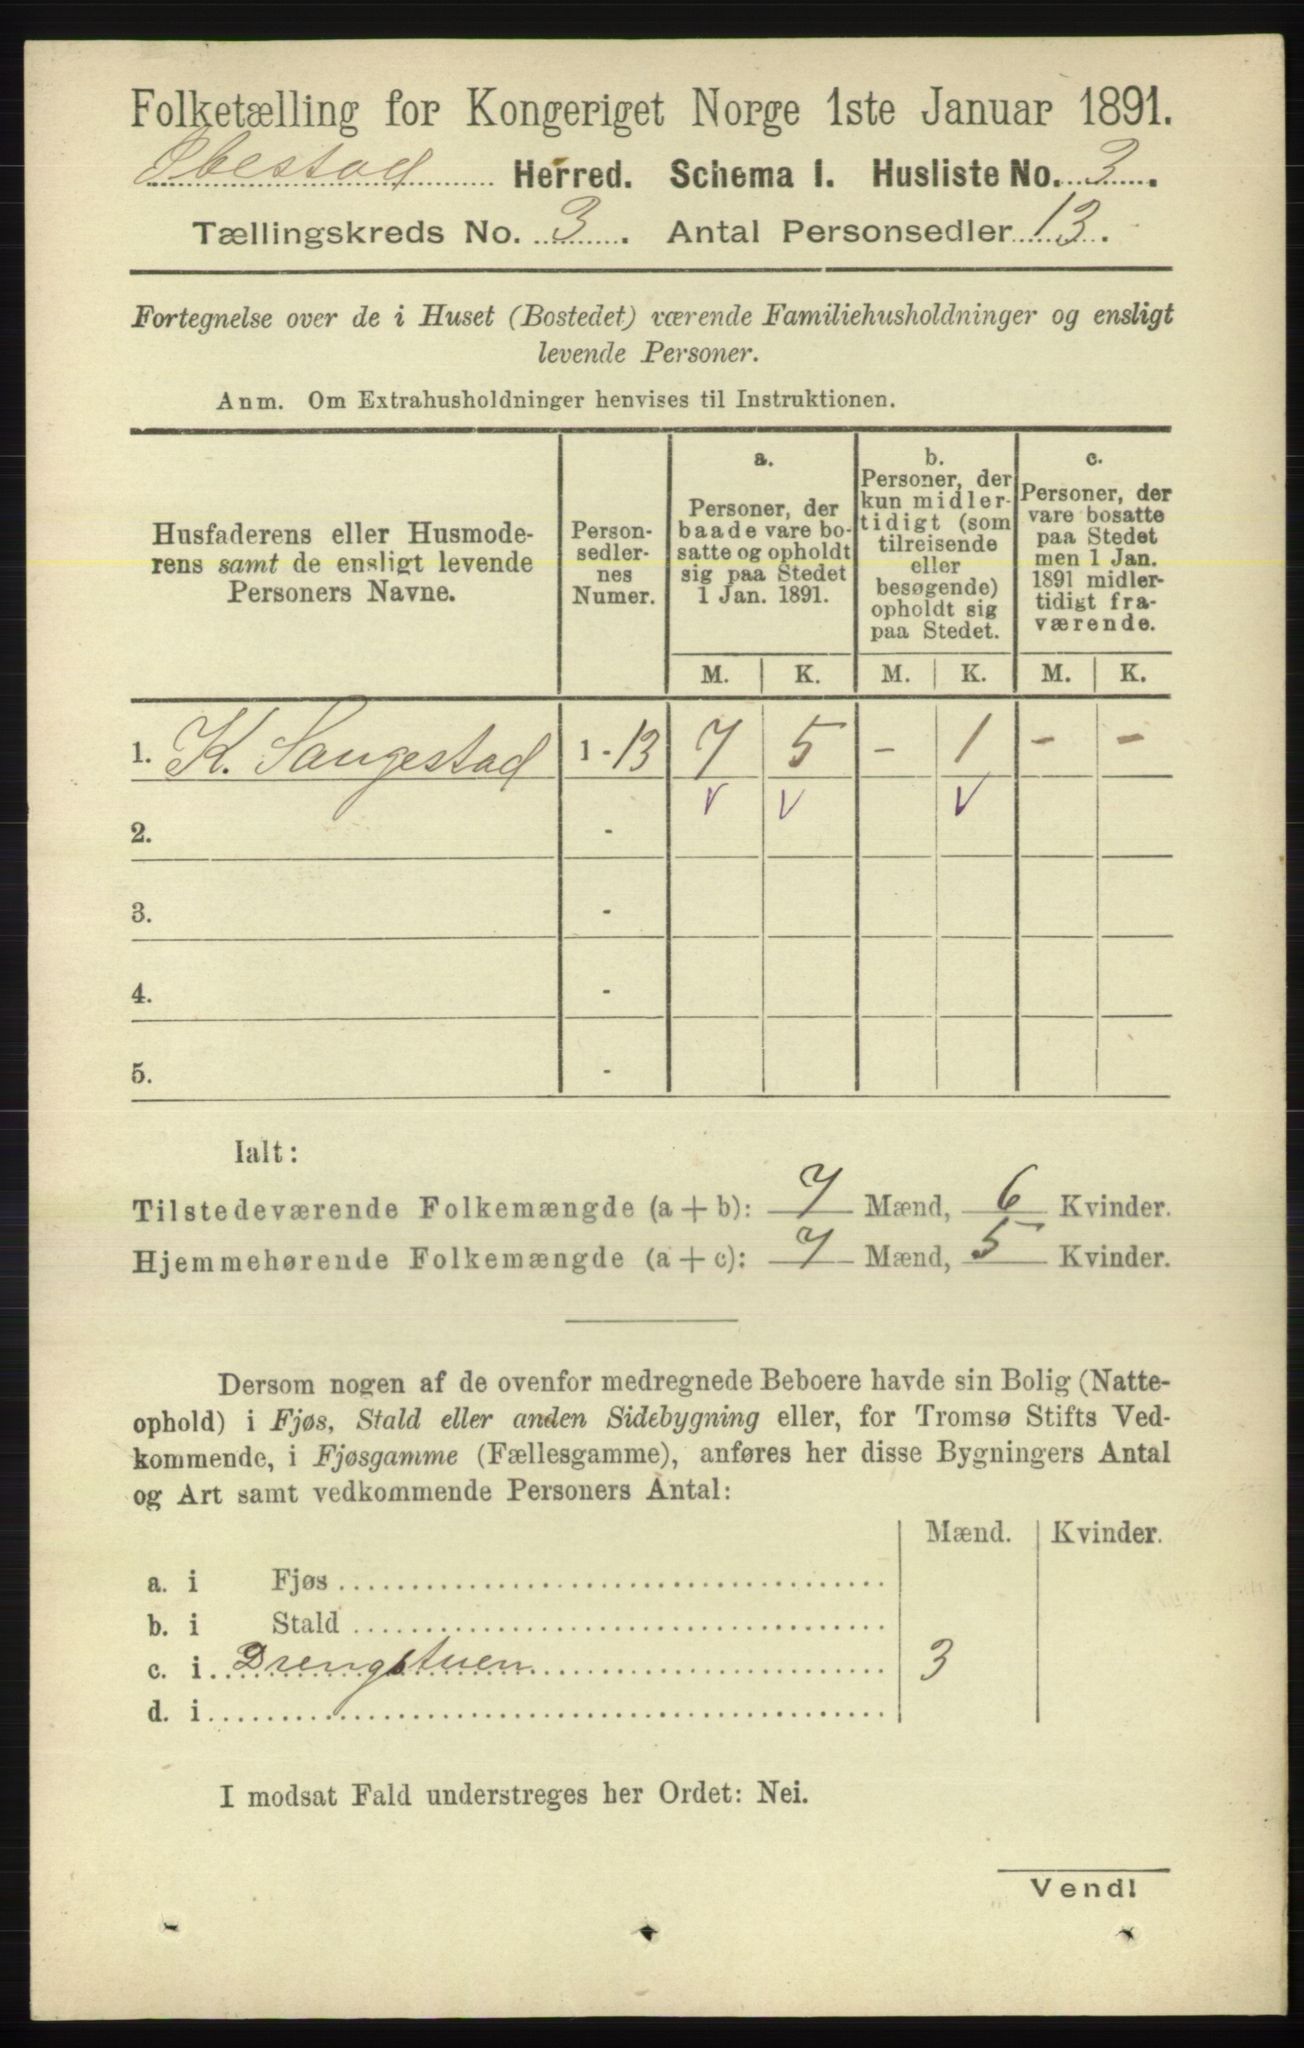 Folketælling for Kongeriget Norge 1ste Januar 1891.
Ibestad Herred. Schema 1. Husliste No. 3.
Tællingskreds No. 3. Antal Personsedler 13.
Fortegnelse over de i Huset (Bostedet) værende Familiehusholdninger og ensligt
levende Personer.
Anm. Om Extrahusholdninger henvises til Instruktionen.
Husfaderens eller Husmode-
rens samt de ensligt levende
Personers Navne.
Person-
sedler-
nes
Numer.
a.
Personer, der
baade vare bo-
satte og opholdt
sig paa Stedet
1 Jan. 1891.
b.
Personer, der
kun midler-
tidigt (som
tilreisende
eller
besøgende)
opholdt sig
paa Stedet.
c.
Personer, der
vare bosatte
paa Stedet
men 1 Jan.
1891 midler-
tidigt fra-
værende.
M. K. M. K. M. K.
1. K. Saugestad 1 - 13 7 5 - 1 - -
V V V
2. -
3. -
4. -
5. -
Ialt:
Tilstedeværende Folkemængde (a + b): 7 Mænd, 6 Kvinder.
Hjemmehørende Folkemængde (a + c): 7 Mænd, 5 Kvinder.
Dersom nogen af de ovenfor medregnede Beboere havde sin Bolig (Natte-
ophold) i Fjøs, Stald eller anden Sidebygning eller, for Tromsø Stifts Ved-
kommende, i Fjøsgamme (Fællesgamme), anføres her disse Bygningers Antal
og Art samt vedkommende Personers Antal:
Mænd. Kvinder.
a. i Fjøs
b. i Stald
c. i Drengstuen 3
d. i
I modsat Fald understreges her Ordet: Nei.
Vend!